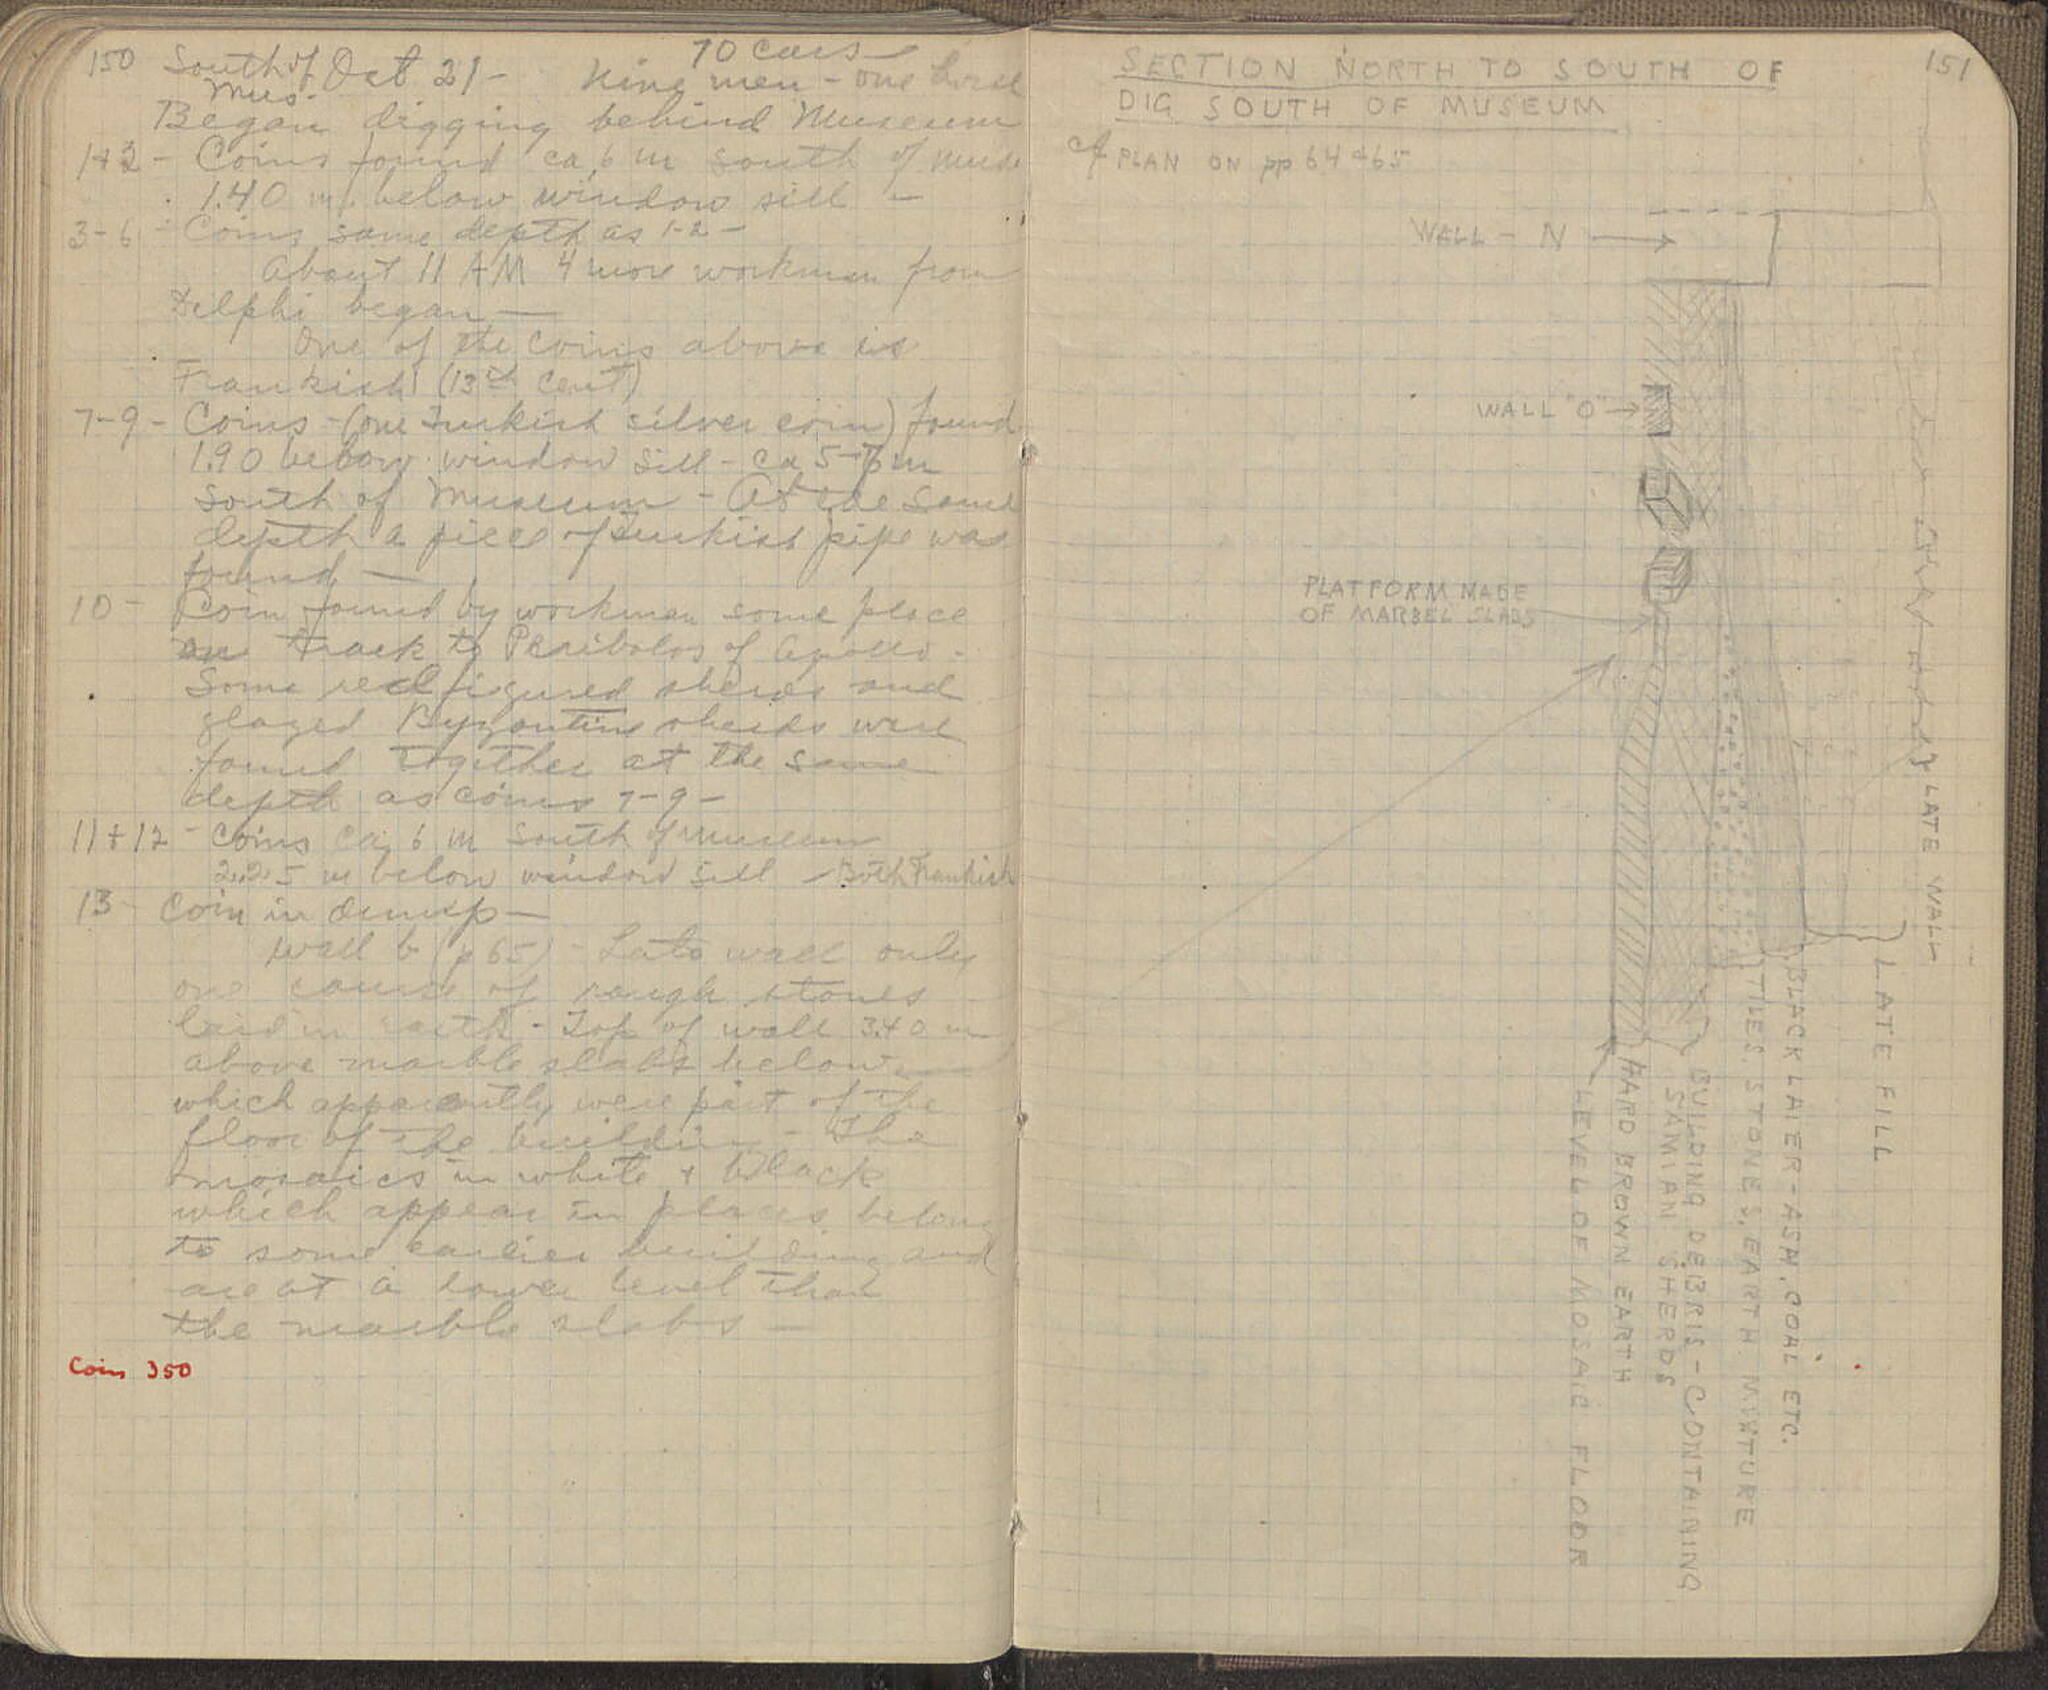 150 South of Oct 21 - 70 cars
Mus. Nine men - one horse
Began digging behind Museum
1+2 - Coins found ca 6 m south of Muse
1.40 m. below window sill -
3-6 - Coins same depth as 1-2 -
About 11 AM 4 more workmen from
Delphi began -
One of the coins above is
Frankish (13th cent)
7-9 - Coins - (one Turkish silver coin) found
1.90 below window sill - ca 5-6 m
South of Museum - At the same
depth a piece of Turkish pipe was
found -
10 - Coin found by workman some place
on track to Peribolos of Apollo -
Some red figured sherds and
glazed Byzantine sherds were
found together at the same
depth as coins 7-9 -
11+12 - Coins ca 6 m South of Museum
2.25 m below window sill - Both Frankish
13 - Coin in dump -
Wall b (p 65) - Late wall only
one course of rough stones
laid in earth - Top of wall 3.40 m
above marble slabs below
which apparently were part of the
floor of the building - The
mosaics in white + black
which appear in places belong
to some earlier building and
are at a lower level than
the marble slabs -
Coin 350
151
SECTION NORTH TO SOUTH OF
DIG SOUTH OF MUSEUM
Cf PLAN ON pp 64+65
WALL - N
WALL "O"
PLATFORM MADE
OF MARBEL SLABS
LATE WALL
LATE FILL
BLACK LAIER - ASH, COAL ETC.
TILES, STONES, EARTH MIXTURE
BUILDING DEBRIS - CONTAINING
SAMIAN SHERDS
HARD BROWN EARTH
LEVEL OF MOSAIC FLOOR